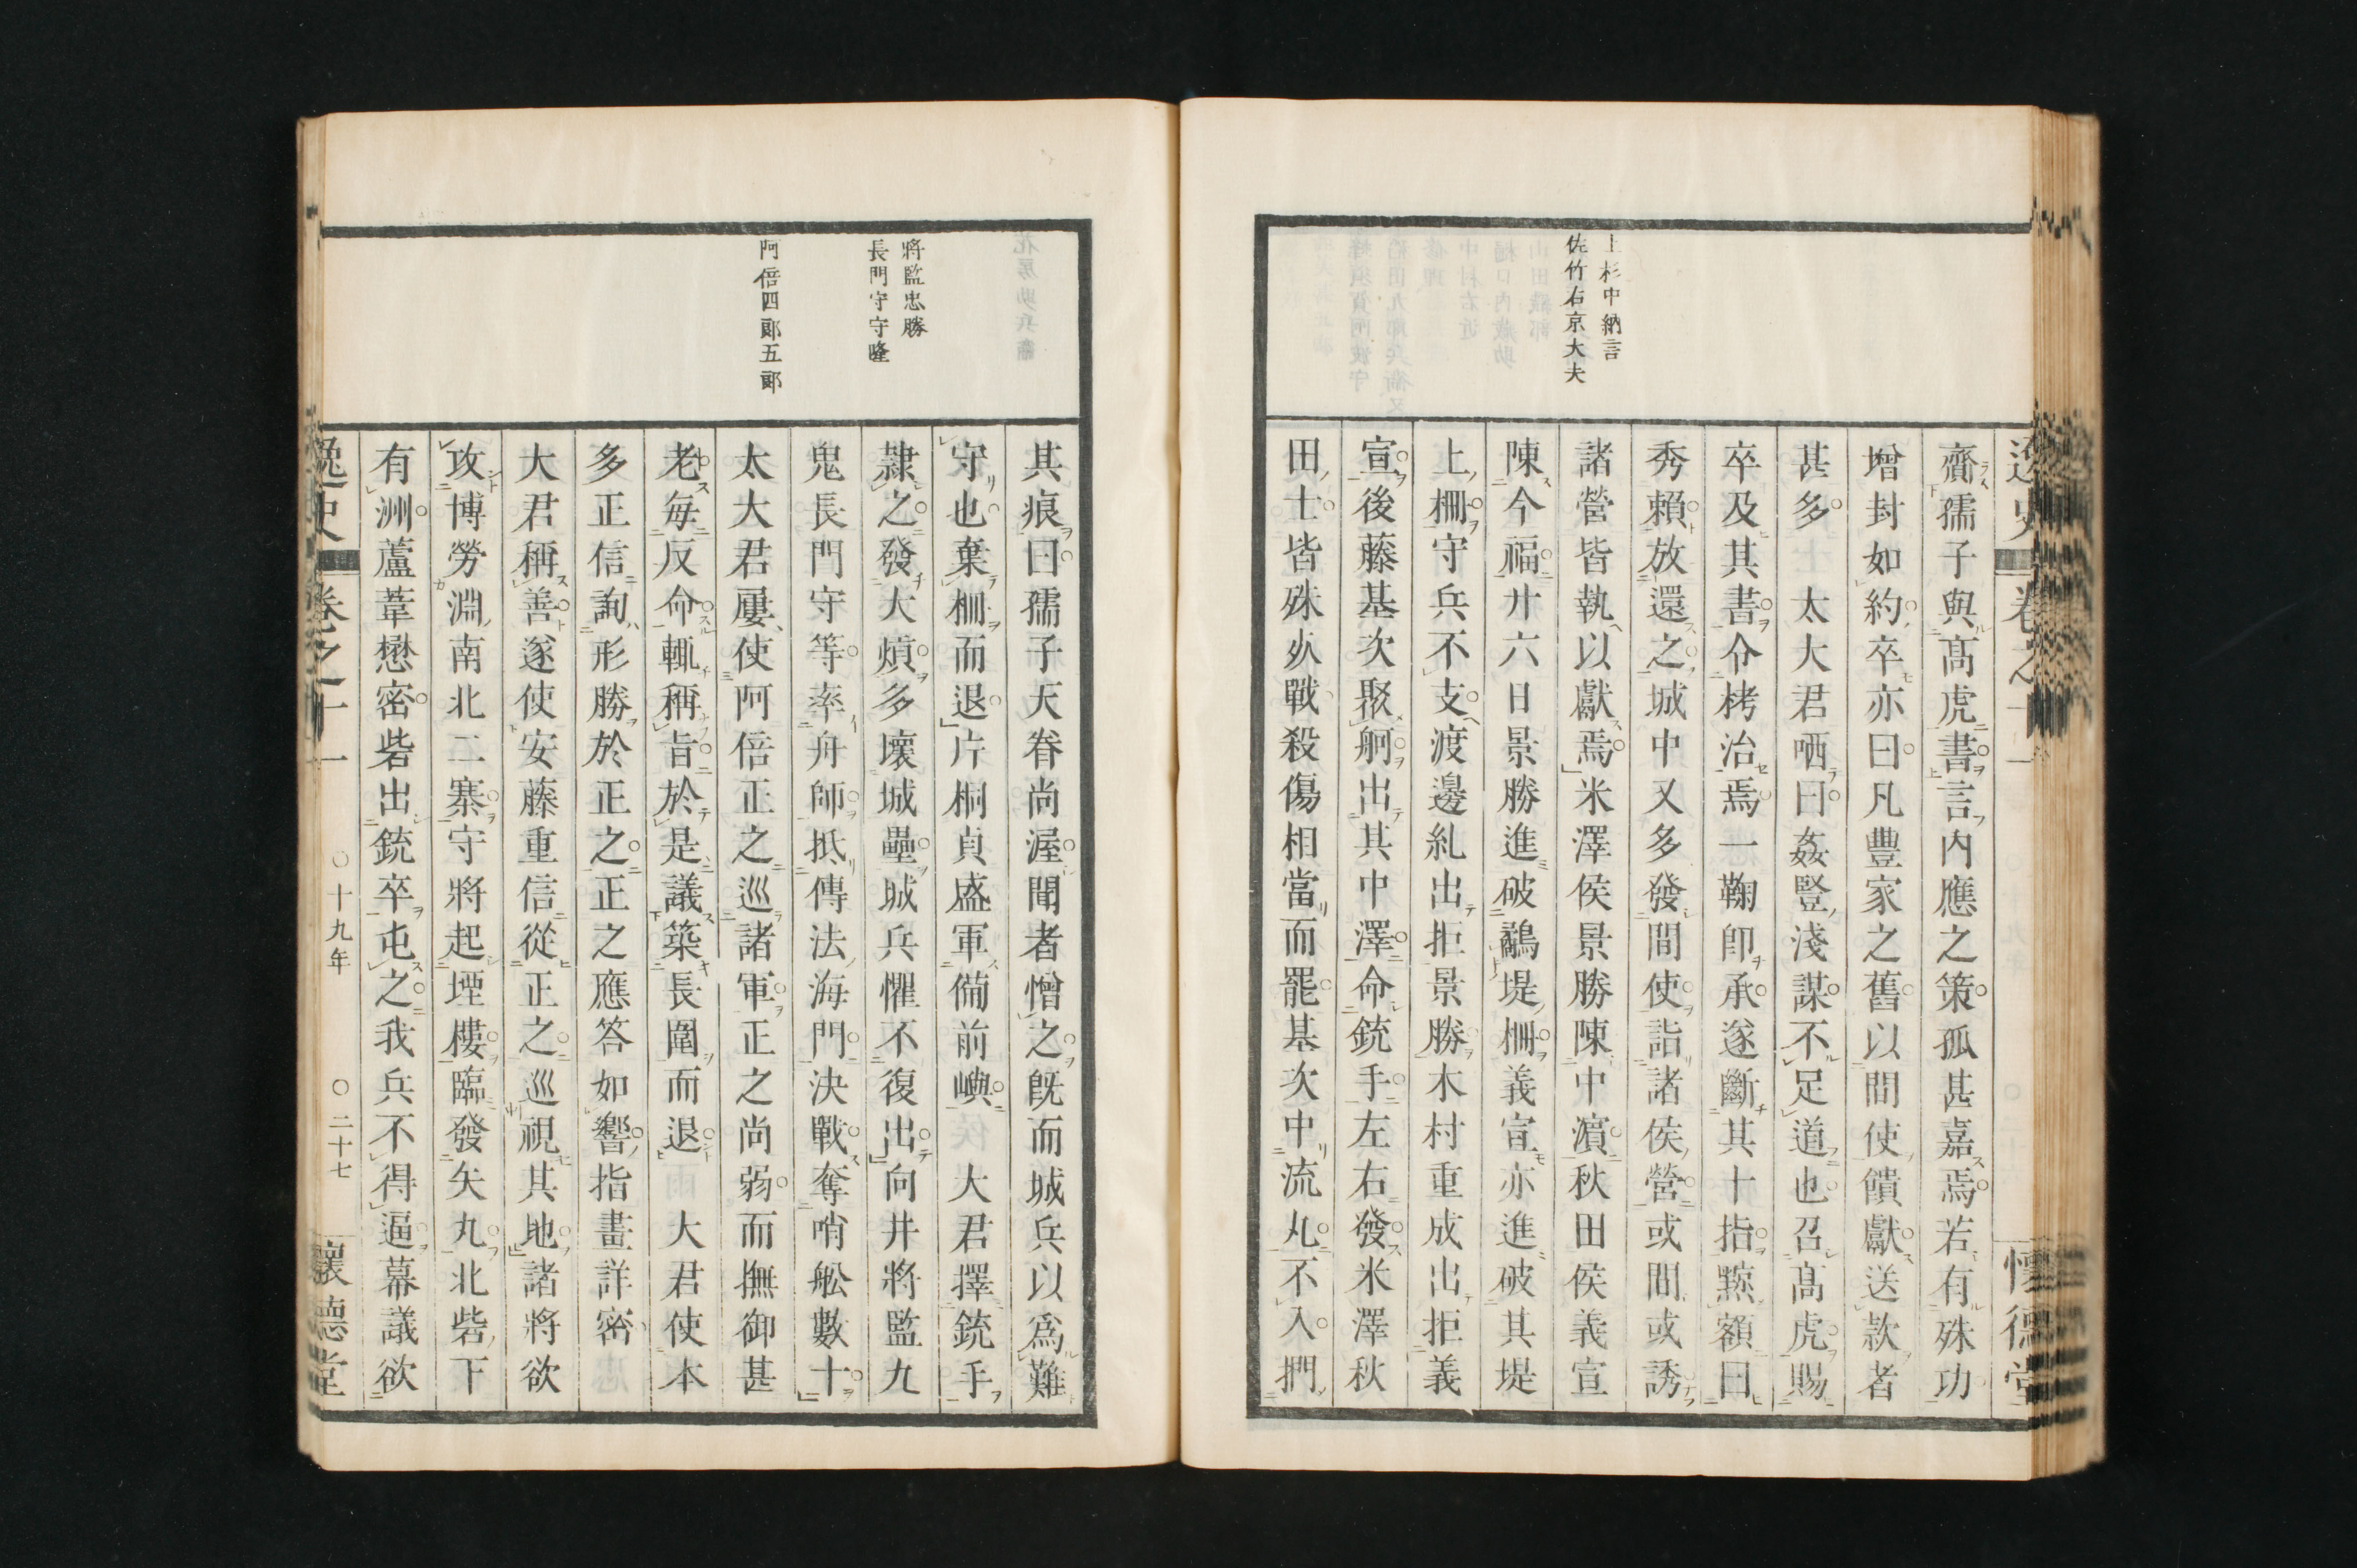 逸史 卷之十一 懷德堂
上杉中納言
佐竹右京大夫
齎孺子與髙虎書言內應之策孤甚嘉焉若有殊功
增封如約卒亦曰凡豐家之舊以間使饋獻送款者
甚多 太大君哂曰姦豎淺謀不足道也召髙虎賜
卒及其書令栲治焉一鞠卽承遂斷其十指黥額曰
秀賴放還之城中又多發間使詣諸侯營或間或誘
諸營皆執以獻焉米澤侯景勝陳中濵秋田侯義宣
陳今福廿六日景勝進破鷸堤柵義宣亦進破其堤
上柵守兵不支渡邊糺出拒景勝木村重成出拒義
宣後藤基次聚舸出其中澤命銃手左右發米澤秋
田士皆殊死戰殺傷相當而罷基次中流丸不入捫
將監忠勝
長門守守隆
阿倍四郞五郞
其痕曰孺子天眷尚渥聞者憎之旣而城兵以爲難
守也棄柵而退片桐貞盛軍備前嶼 大君擇銃手
隷之發大熕多壞城壘城兵懼不復出向井將監九
鬼長門守等率舟師抵傳法海門決戰奪哨舩數十
太大君屢使阿倍正之巡諸軍正之尚弱而撫御甚
老每反命輒稱旨於是議築長圍而退 大君使本
多正信詢形勝於正之正之應答如響指畫詳密
大君稱善遂使安藤重信從正之巡視其地諸將欲
攻博勞淵南北二寨守將起堙樓臨發矢丸北砦下
有洲蘆葦懋密砦出銃卒屯之我兵不得逼幕議欲
逸史 卷之十一 ○十九年 ○二十七 懷德堂